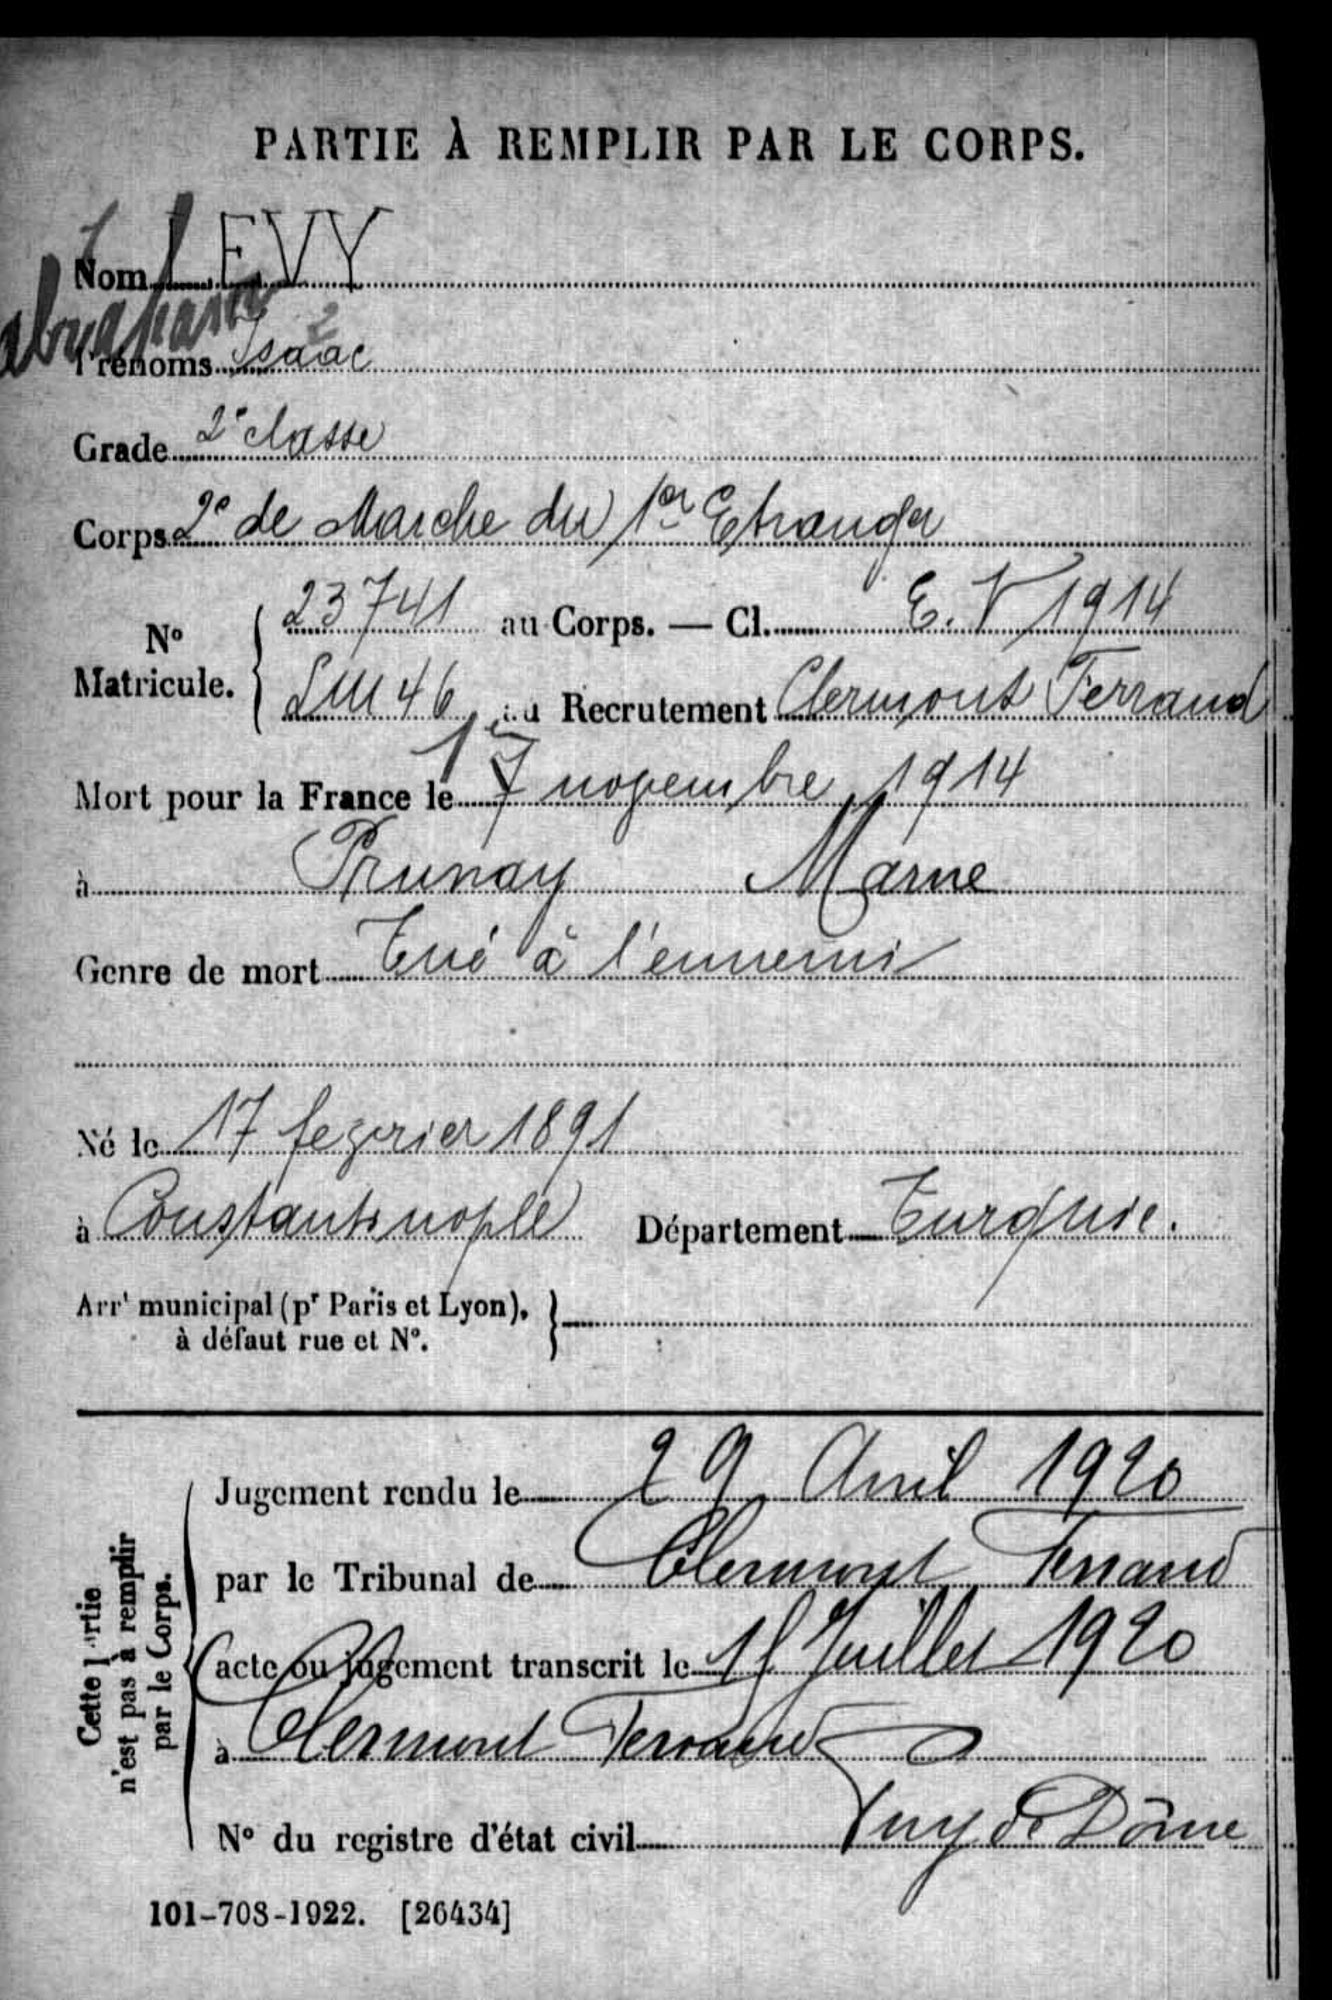 PARTIE À REMPLIR PAR LE CORPS.
Nom LEVY
abraham 2
Prénoms Isaac
Grade 2e classe
Corps 2e de Marche du 1er Etranger
No Matricule. { 23741 au Corps. — Cl. E. V 1914
LM 46 au Recrutement Clermont Ferrand
Mort pour la France le 1er novembre 1914
à Prunay Marne
Genre de mort Tué à l'ennemi
Né le 17 fevrier 1891
à Constantinople Département Turquie.
Arrt municipal (pr Paris et Lyon),
à défaut rue et No.
Cette partie
n'est pas à remplir
par le Corps.
Jugement rendu le 29 Avril 1920
par le Tribunal de Clermont Ferrand
acte ou jugement transcrit le Juillet 1920
à Clermont Ferrand
Puy de Dôme
No du registre d'état civil
101-708-1922. [26434]